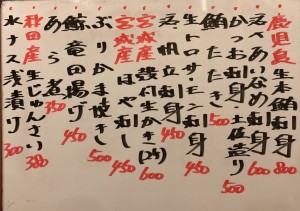 鹿児島産 生本鮪刺身 800
活〆あいなめ刺身 600
かつおたたき 土佐造り 500
鮪たたき
生トロサーモン刺身 450
活帆立刺し
宮城産 殻付生かき(2ケ) 600
宮城産 ほや刺し 450
ぶりかま焼き 500
鮪竜田揚げ 450
あら煮 350
秋田産 生じゅんさい 380
水ナス浅漬け 300